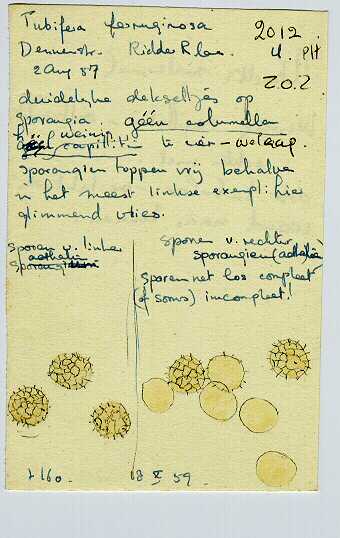 Tubifera ferruginosa 2012
Dennenstr. Ridder R. laan. U. PH
2 Aug 57 Z.O.Z
duidelijke dekseltjes op
sporangia. géén columellen
weinig capillitia te zien
sporangien toppen vrij behalve
in het meest linkse exempl: hier
glimmend vlies.
sporen v. linker
aethalia
sporen v. rechter
sporangien (aethalia)
sporen net los compleet
(of soms) incompleet!
1160. 18 X 59.